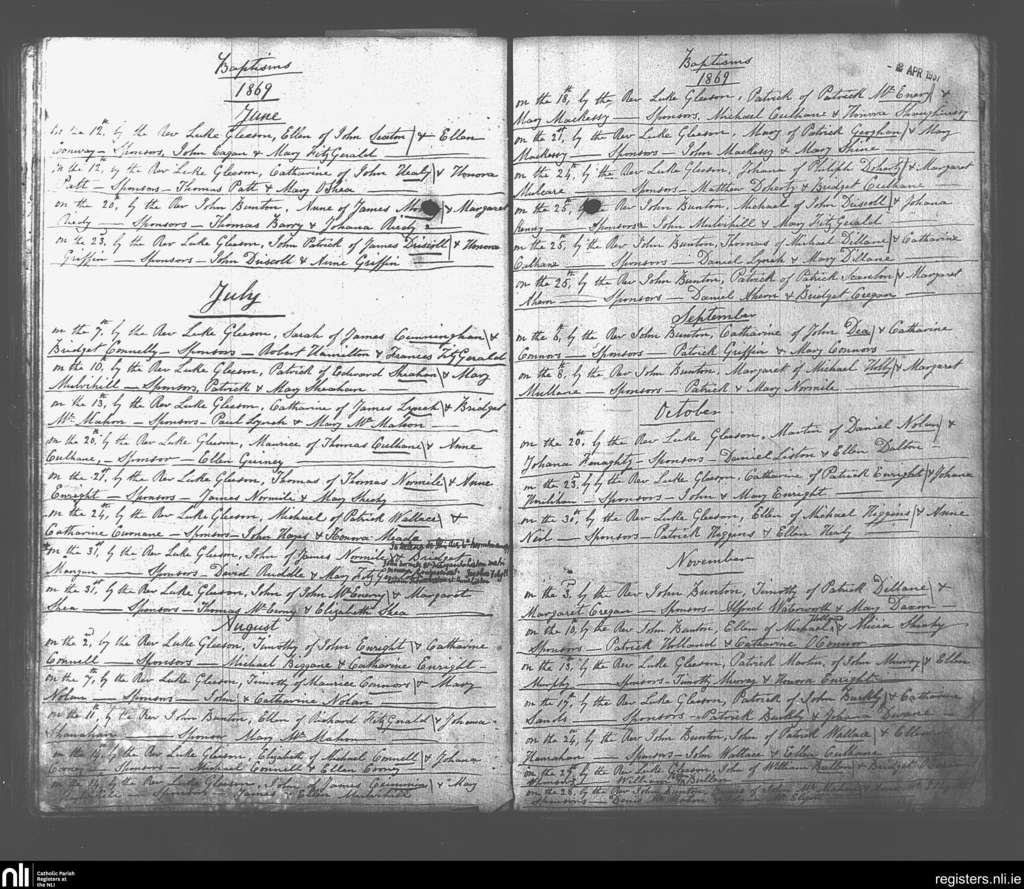 Baptisms
1869
June
on the 12th, by the Rev Luke Gleeson, Ellen of John Sexton) & Ellen
Conway — Sponsors, John Eagan & Mary FitzGerald
on the 12th, by the Rev Luke Gleeson, Catharine of John Healy) & Honora
Patt — Sponsors — Thomas Patt & Mary OShea
on the 20th, by the Rev John Bunton, Anne of James & Margaret
Riedy — Sponsors — Thomas Barry & Johana Riedy
on the 23rd, by the Rev Luke Gleeson, John Patrick of James Driscoll) & Honora
Griffin — Sponsors — John Driscoll & Anne Griffin
July
on the 7th, by the Rev Luke Gleeson, Sarah of James Cunninghan) &
Bridget Connelly — Sponsors — Robert Hamilton & Frances FitzGerald
on the 10th, by the Rev Luke Gleeson, Patrick of Edward Sheahan) & Mary
Mulvihill — Sponsors, Patrick & Mary Sheahan
on the 13th, by the Rev Luke Gleeson, Catharine of James Lynch) & Bridget
Mc Mahon — Sponsors — Paul Lynch & Mary Mc Mahon
on the 20th, by the Rev Luke Gleeson, Maurice of Thomas Culhane) & Anne
Culhane, — Sponsor — Ellen Guiney
on the 21st, by the Rev Luke Gleeson, Thomas of Thomas Normile) & Anne
Enright — Sponsors — James Normile & Mary Sheehy
on the 24th, by the Rev Luke Gleeson, Michael of Patrick Wallace) &
Catharine Curnane — Sponsors — John Hayes & Honora Meade
on the 31st, by the Rev Luke Gleeson, John of James Normile) & Bridget
Mangan — Sponsors — David Ruddle & Mary FitzGerald
on the 31st, by the Rev Luke Gleeson, John of John McEnery) & Margaret
Shea — Sponsors — Thomas McEnery & Elizabeth Shea
August
on the 2nd, by the Rev Luke Gleeson, Timothy of John Enright) & Catharine
Connell — Sponsors — Michael Biggane & Catharine Enright
on the 7th, by the Rev Luke Gleeson, Timothy of Maurice Connors) & Mary
Nolan — Sponsors — John & Catharine Nolan
on the 11th, by the Rev John Bunton, Ellen of Richard FitzGerald) & Johana
Shanahan — Sponsor Mary Mc Mahon
on the 14th, by the Rev Luke Gleeson, Elizabeth of Michael Connell) & Johana
— Sponsors — Michael Connell & Ellen
on the by the Rev Luke Gleeson, John of James & Mary
Sponsors Ellen
Baptisms
1869
2 APR
on the 18th, by the Rev Luke Gleeson, Patrick of Patrick McEnery) &
Mary Mackessy — Sponsors, Michael Culhane & Honora Shaughnessy
on the 21st, by the Rev Luke Gleeson, Mary of Patrick Geoghan) & Mary
Mackessy — Sponsors — John Mackessy & Mary Shine
on the 24th, by the Rev Luke Gleeson, Johana of Philiph Doherty) & Margaret
Mulcare — Sponsors — Matthew Doherty & Bridget Culhane
on the 25th, Rev John Bunton, Michael of John Driscoll) & Johana
Kenny — Sponsors John Mulvihill & Mary FitzGerald
on the 25th, by the Rev John Bunton, Thomas of Michael Dillane) & Catharine
Culhane — Sponsors — Daniel Lynch & Mary Dillane
on the 26th, by the Rev John Bunton, Patrick of Patrick Scanlon) & Margaret
Ahern — Sponsors — Daniel Ahern & Bridget Cregan
September
on the 6th, by the Rev John Bunton, Catharine of John Dea) & Catharine
Connors — Sponsors — Patrick Griffin & Mary Connors
on the 8th, by the Rev John Bunton, Margaret of Michael & Margaret
Mullane — Sponsors — Patrick & Mary Normile
October
on the 20th, by the Rev Luke Gleeson, Martin of Daniel Nolan) &
Johana Henaghty — Sponsors — Daniel Liston & Ellen Dalton
on the 23rd, by the Rev Luke Gleeson, Catharine of Patrick Enright) & Johana
Houlihan — Sponsors — John & Mary Enright
on the 30th, by the Rev Luke Gleeson, Ellen of Michael Higgins) & Anne
Neil — Sponsors — Patrick Higgins & Ellen Healy
November
on the 3rd, by the Rev John Bunton, Timothy of Patrick Dillane) &
Margaret Cregan — Sponsors — Alfred Waterworth & Mary Daxon
on the 10th, by the Rev John Bunton, Ellen of Michael & Alicia Sheehy
Sponsors — Patrick Holland & Catharine OConnor
on the 13th, by the Rev Luke Gleeson, Patrick Martin, of John Murray) & Ellen
Murphy — Sponsors — Timothy Murray & Honora Enright
on the 17th, by the Rev Luke Gleeson, Patrick of John Barkly) & Catharine
Sands — Sponsors — Patrick Barkly & Johana
on the 24th, by the Rev John Bunton, John of Patrick Wallace) & Ellen
Hanrahan — Sponsors — John Wallace & Ellen Culhane
on the by the Rev Luke Gleeson, John of William & Bridget
on the 28th, by the Rev John Bunton, of John Mc Mahon
Sponsors — Denis Mc Mahon
nli
Catholic Parish
Registers at
the NLI
registers.nli.ie